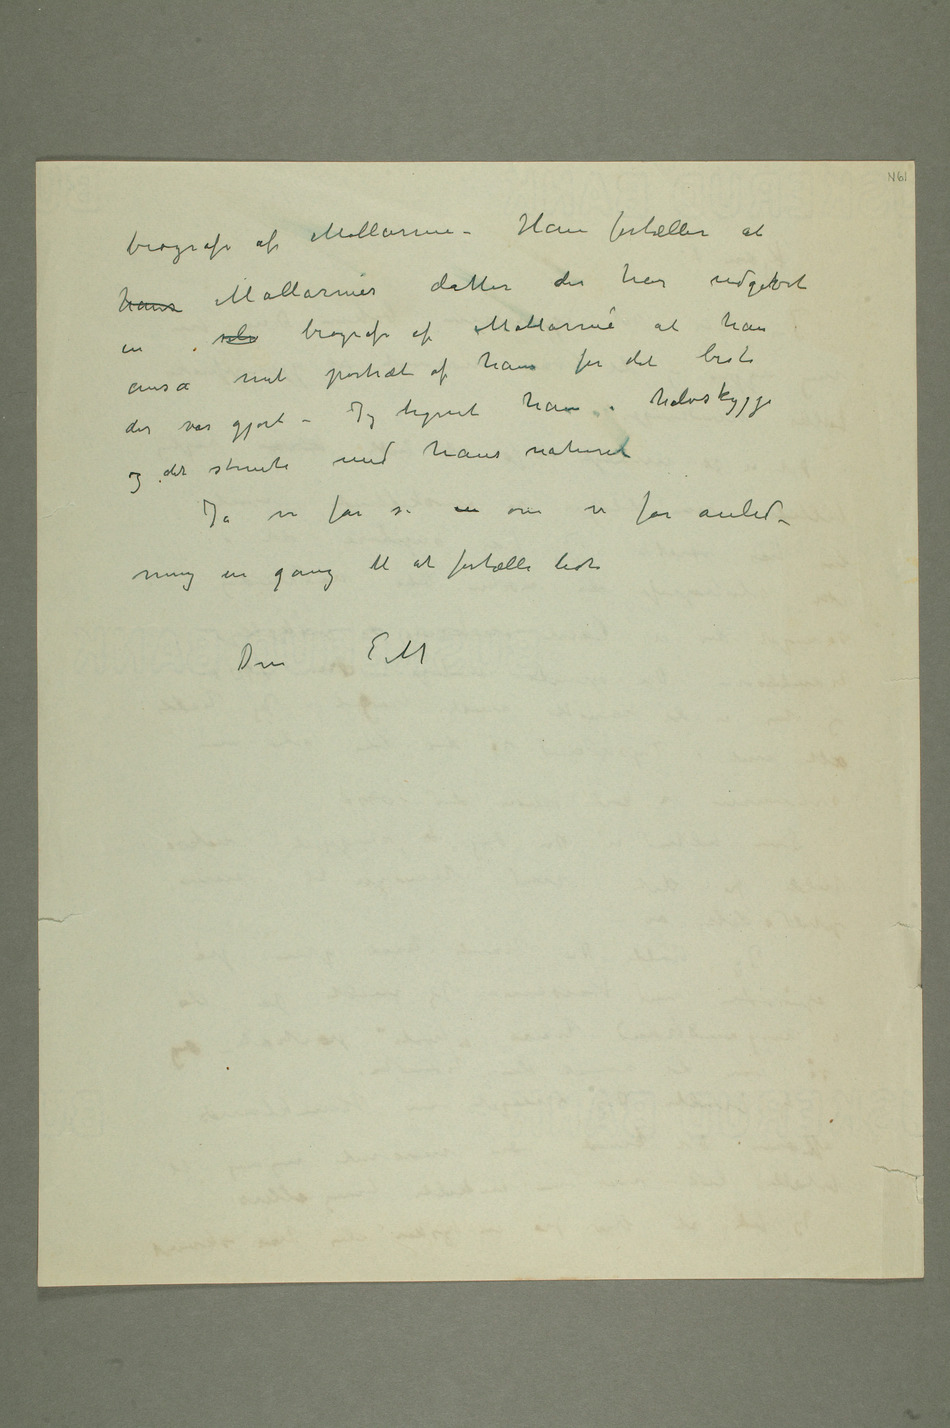 N61
biografi af Mallarme – Han fortæller at
hans Mallarmés datter der har udgivet
en selv biografi af Mallarmé at han
anså mit portræt af ham for det beste
der var gjort – Jg tegnet ham i halvskygge
og det stemte med hans naturel
Ja vi får se en om vi får anled-
ning en gang til at fortælle lidt
Din EM